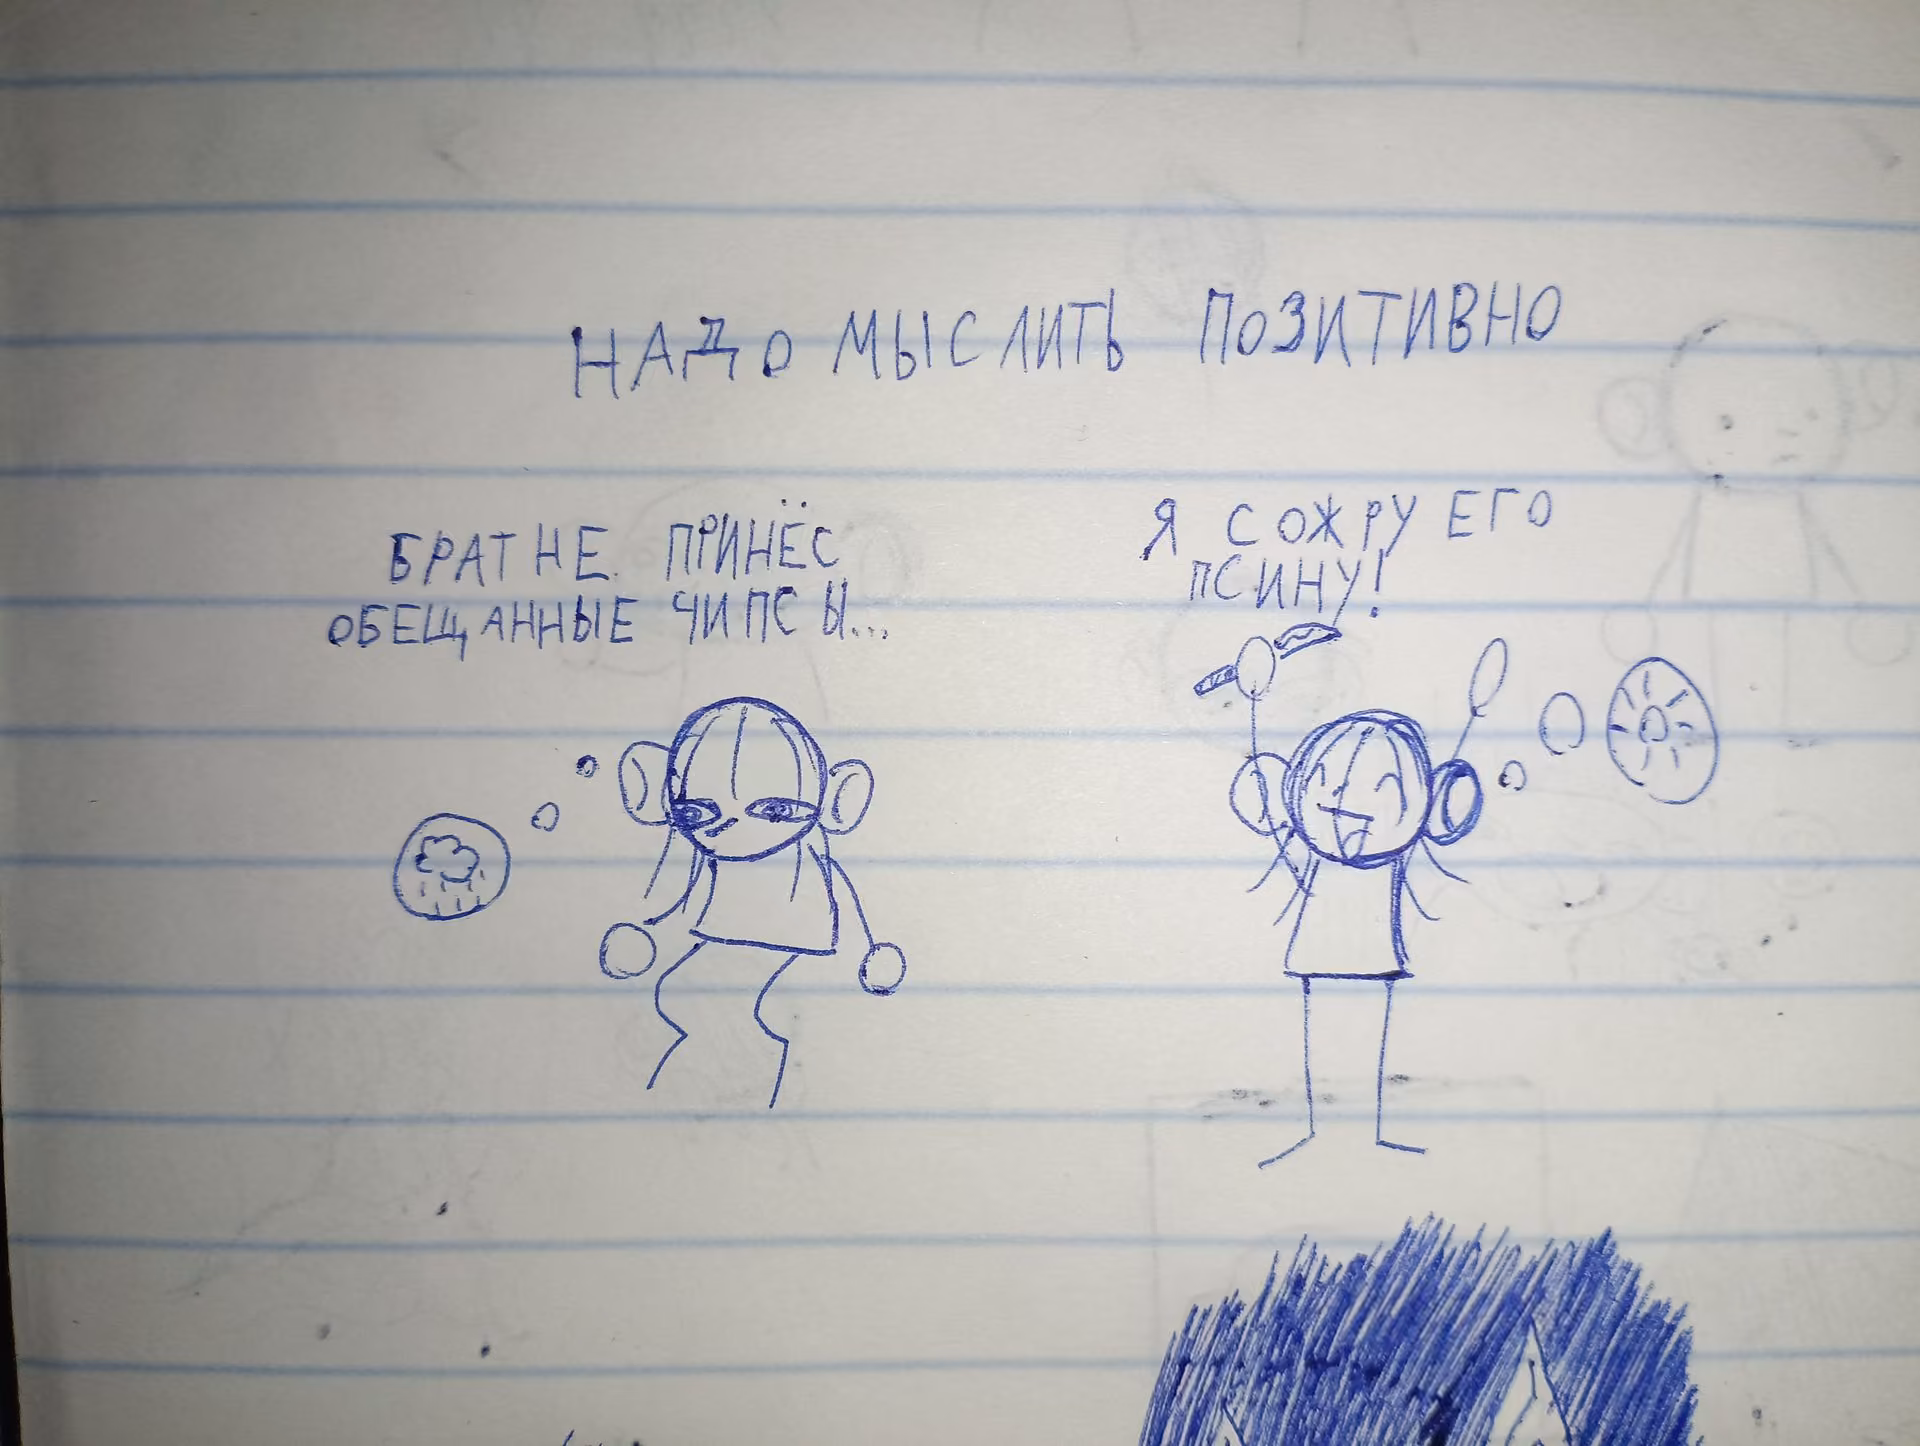 НАДО МЫСЛИТЬ ПОЗИТИВНО
БРАТ НЕ ПРИНЁС
ОБЕЩАННЫЕ ЧИПСЫ...
Я СОЖРУ ЕГО
ПСИНУ!